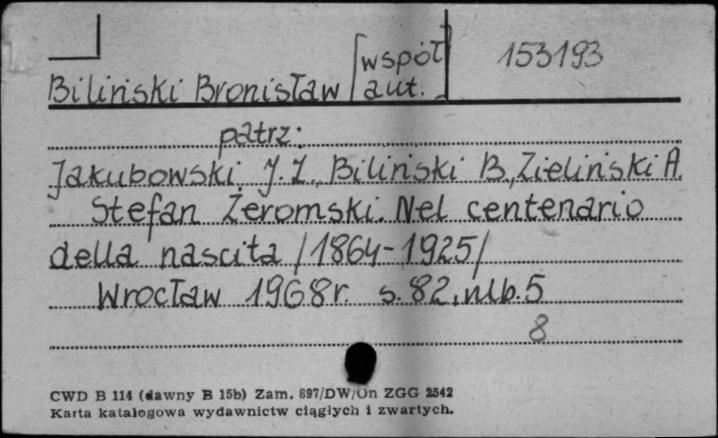 153193
Biliński Bronisław [współ aut.]
patrz:
Jakubowski J. Z., Biliński B., Zieliński A.
Stefan Żeromski. Nel centenario
della nascita /1864-1925/
Wrocław 1968 r. s. 82, nlb. 5
8
CWD B 114 (dawny B 15b) Zam. 897/DW/On ZGG 2542
Karta katalogowa wydawnictw ciągłych i zwartych.